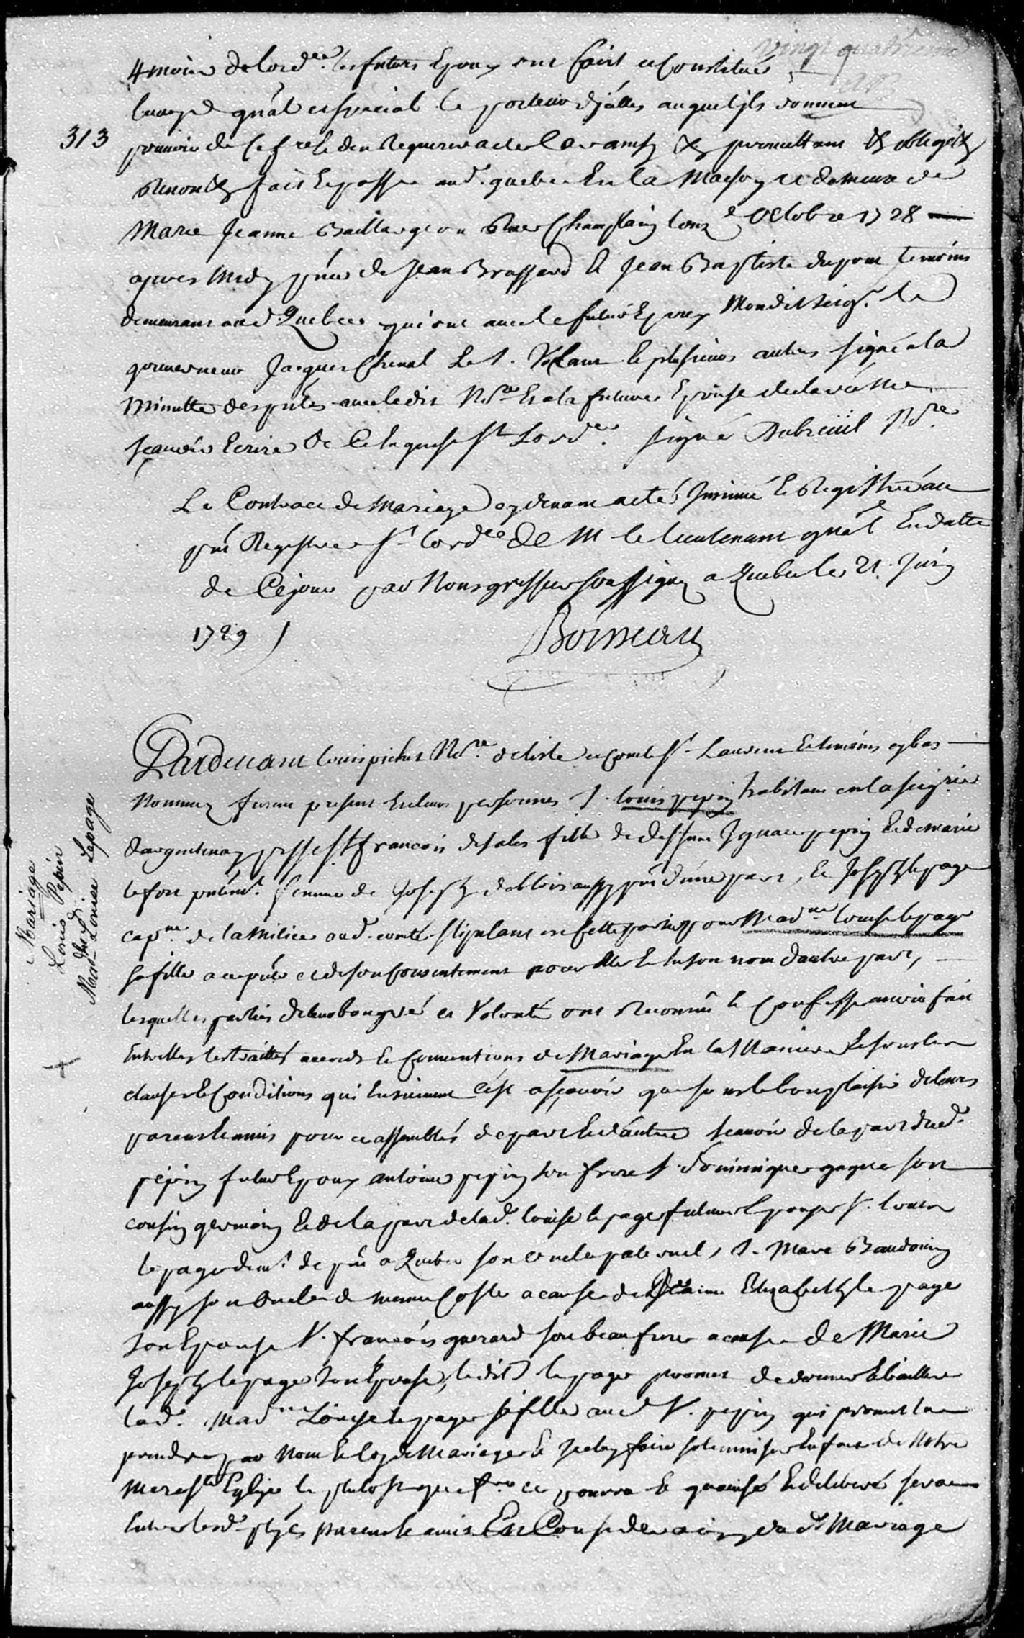 vingt quatrieme
4 mois de lord.ce les futurs Epoux ont fait et Constitués
leur gnal et special le porteur d'jelles auquel ils donnent
313
pouvoir de ce f Requerir acte Car ainsy &c promettant &c obligeant &c
Renonçt &c fait et passé aud. quebec En la Maison et demeure de
Marie Jeanne Baillargeon Rue Champlain Octobre 1728
apres midy pñce de Jean Brassard & Jean Baptiste dupont temoins
demeurans aud Quebec qui ont avec le futur Epoux Mondit seigr. le
gouverneur Jacques Chenal Le S. Volant & plusieurs autres signé a la
Minutte des pñtes avec ledit Nore Et a la future Epouse declaré ne
scavoir Ecrire De Ce Enquise st. Lordce. signé Dubreüil Nre.
Le Contract de Mariage Insinué & Registré au
pñt Registre st lordce de M le Lieutenant gnal En datte
de Ce jour par Nous greffier soussigné a Quebec le 21 Juin
1729
Boisseau
Pardevant Louis pichet Nore de liste et Comté St Laurent & temoins cy bas
Nommez furent presens En leurs personnes S. Louis pepin habitant en la seigrie
dargentenay psse St francois de sales fils de deffunt Ignace pepin & de Marie
lefort femme de Joseph deblois aussy pñt d'une part, & Joseph lepage
capne de la Milice aud. comté stipulant en cette partie pour Madne Louise lepage
sa fille a ce pñte et de son Consentement pour Elle & En son nom dautre part,
lesquelles parties de leur bon gré et Volonté ont Reconnu & Confessé avoir fait
Entrelles les traittés accords & Conventions de Mariage En la Maniere Et sous les
clauses & Conditions qui Ensuivent C'est ascavoir que sous le bon plaisir de leurs
parens & amis pour ce assemblés de part & d'autre scavoir de la part dud.
pepin futur Epoux antoine pepin son frere S. Dominique gagné son
cousin germain & de la part de lad. Louise lepage future Epouse S. Louis
lepage demt. de pñt a Quebec son oncle paternel, S. Marc Baudoin
aussy son Oncle de mesme Coste a cause de Elizabeth lepage
son Epouse S. francois guerard son beau frere a cause de Marie
Joseph lepage son Epouse, ledit S. lepage promet de donner & bailler
lad. Madne Louise lepage sa fille aud S. pepin qui promet la
prendre par Nom & loy de Mariage & Jceluy faire solemniser En face de Notre
Mere Ste Eglise le plutost que f. ce pourra & qu'avisé Et deliberé sera
Entre lesd. ptyes parens & amis En Consideration du d. Mariage
Mariage
Louis Pepin
&
Mad– Louise Lepage